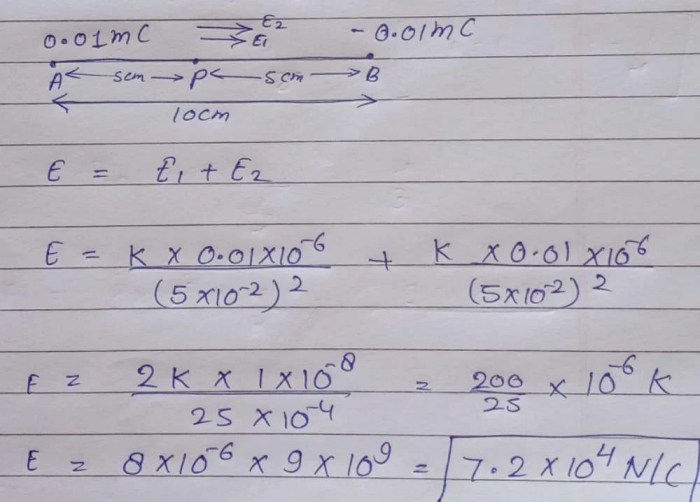 0.01mC E2 -0.01mC
E1
A 5cm P 5cm B
10cm
E = E1 + E2
E = K × 0.01×10^-6 / (5×10^-2)^2 + K × 0.01 ×10^-6 / (5×10^-2)^2
E = 2K × 1×10^-8 / 25 × 10^-4 = 200/25 × 10^-6 K
E = 8×10^-6 × 9×10^9 = 7.2×10^4 N/C